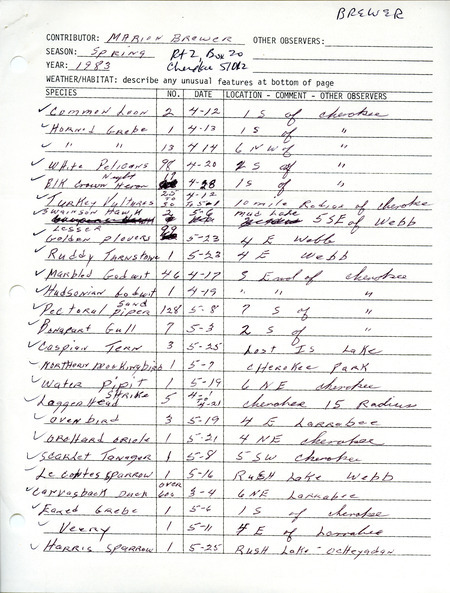 BREWER
CONTRIBUTOR: MARION BREWER OTHER OBSERVERS:
SEASON: SPRING Rt 2, Box 20
YEAR: 1983 Cherokee 51012
WEATHER/HABITAT: describe any unusual features at bottom of page
SPECIES NO. DATE LOCATION - COMMENT - OTHER OBSERVERS
✓ Common Loon 2 4-12 1 S of cherokee
✓ Horned Grebe 1 4-13 1 S of "
✓ " " 13 4-14 6 NW of "
✓ White Pelicans 98 4-20 2 S of "
✓ Blk Crown Night Heron 4-28 1 S of "
✓ Turkey Vultures 4-12 10 mile Radius of cherokee
✓ Swainson Hawk 2 5-6 Mud Lake 5 SE of Webb
✓ Lesser Golden Plovers 99 5-23 4 E Webb
✓ Ruddy Turnstone 1 5-23 4 E Webb
✓ Marbled Godwit 46 4-17 S End of cherokee
✓ Hudsonian Godwit 1 4-19 " " "
✓ Pectoral Sand piper 128 5-8 7 S of "
✓ Bonapart Gull 7 5-3 2 S of "
✓ Caspian Tern 3 5-25 Lost Is Lake
✓ Northern Mockingbird 1 5-7 Cherokee Park
✓ Water Pipit 1 5-19 6 NE cherokee
✓ Loggerhead Shrike 5 cherokee 15 Radius
✓ Ovenbird 3 5-19 4 E Larrabee
✓ Orchard Oriole 1 5-21 4 NE cherokee
✓ Scarlet Tanager 1 5-8 5 SW cherokee
✓ Le Contes Sparrow 1 5-16 Rush Lake Webb
✓ Canvasback Duck over 600 3-4 6 NE Larrabee
✓ Eared Grebe 1 5-6 1 S of cherokee
✓ Veery 1 5-11 4 E of Larrabee
✓ Harris Sparrow 1 5-25 Rush Lake - Ocheyedan